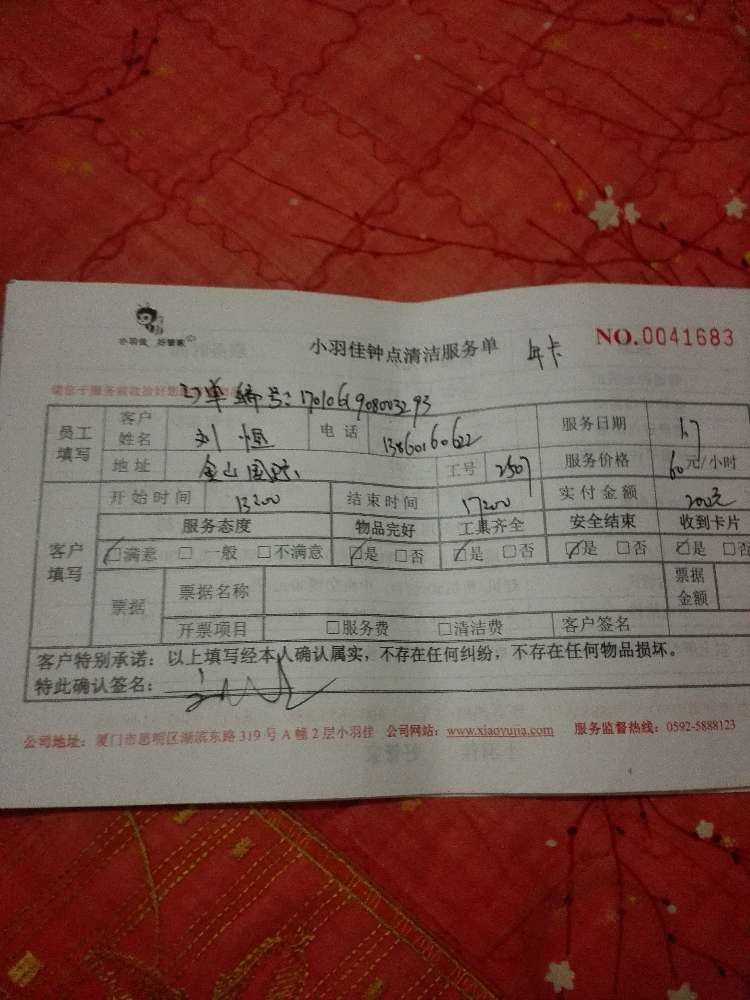 小羽佳 好管家
小羽佳钟点清洁服务单 年卡 NO.0041683
订单编号:
员工填写 客户姓名 刘恒 电话 13860160622 服务日期 1.7
地址 金山国际 工号 2507 服务价格 60元/小时
客户填写 开始时间 13:00 结束时间 17:00 实付金额 200元
服务态度 物品完好 工具齐全 安全结束 收到卡片
☑满意 □一般 □不满意 ☑是 □否 ☑是 □否 ☑是 □否 ☑是 □否
票据 票据名称 票据金额
开票项目 □服务费 □清洁费 客户签名
客户特别承诺：以上填写经本人确认属实，不存在任何纠纷，不存在任何物品损坏。
特此确认签名：
公司地址：厦门市思明区湖滨东路319号A幢2层小羽佳 公司网站：www.xiaoyujia.com 服务监督热线：0592-5888123